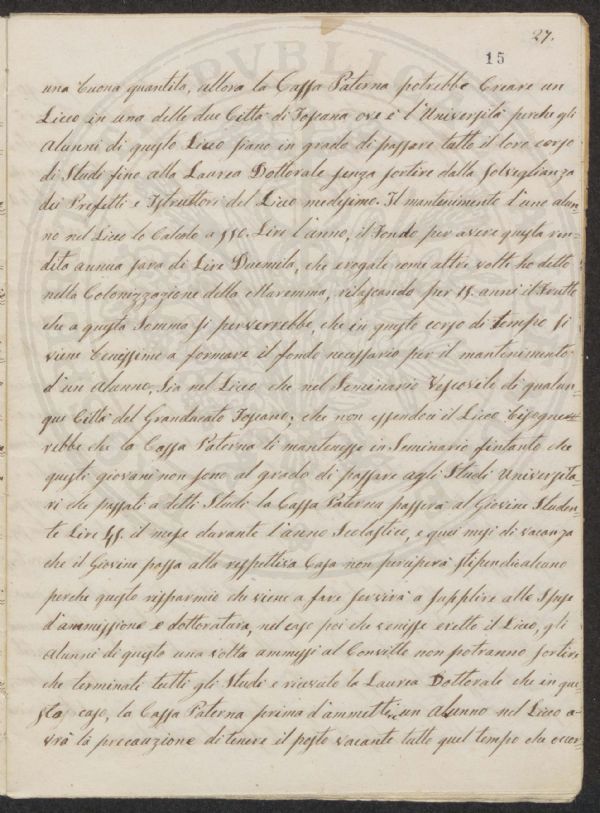 27.
15
una buona quantità, allora la Cassa Paterna potrebbe Creare un
Liceo in una delle due Città di Toscana ove è l'Università perche gli
Alunni di questo Liceo siano in grado di passare tutto il loro corso
di Studi fino alla Laurea Dottorale senza sortire dalla sorveglianza
dei Prefetti e Istruttori del Liceo medesimo. Il mantenimento d'uno alun-
no nel Liceo lo Calcolo a Lire l'anno, il Fondo per avere questa ren-
dita annua sara di Lire Duemila, che erogate come altre volte ho detto
nella Colonizzazione della Maremma, rilasciando per 15. anni il Frutto
che a questa Somma si perverrebbe, che in questo corso di tempo si
viene benissimo a formare il fondo necessario per il mantenimento
d'un Alunno, Sia nel Liceo che nel Seminario Vescovile di qualun-
que Città del Granducato Toscano; che non essendoci il Liceo bisogne-
rebbe che la Cassa Paterna li mantenesse in Seminario fintanto che
questi giovani non sono al grado di passare agli Studi Universita-
ri che passati a detti Studi la Cassa Paterna passerà al Giovine Studen-
te Lire 45. il mese durante l'anno Scolastico, e quei mesi di vacanza
che il Giovine passa alla respettiva Casa non perciperà stipendio alcuno
perche questo risparmio che viene a fare servirà a supplire alle Spese
d'ammissione e dottoratura, nel caso poi che venisse eretto il Liceo, gli
Alunni di questo una volta ammessi al Convitto non potranno sortire
che terminati tutti gli Studi e ricevuto la Laurea Dottorale che in que-
sto caso, la Cassa Paterna prima d'ammettere un alunno nel Liceo a-
vrà la precauzione di tenere il posto vacante tutto quel tempo che occor-